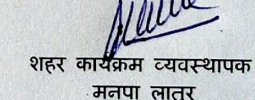 शहर कार्यक्रम व्यवस्थापक
मनपा लातूर